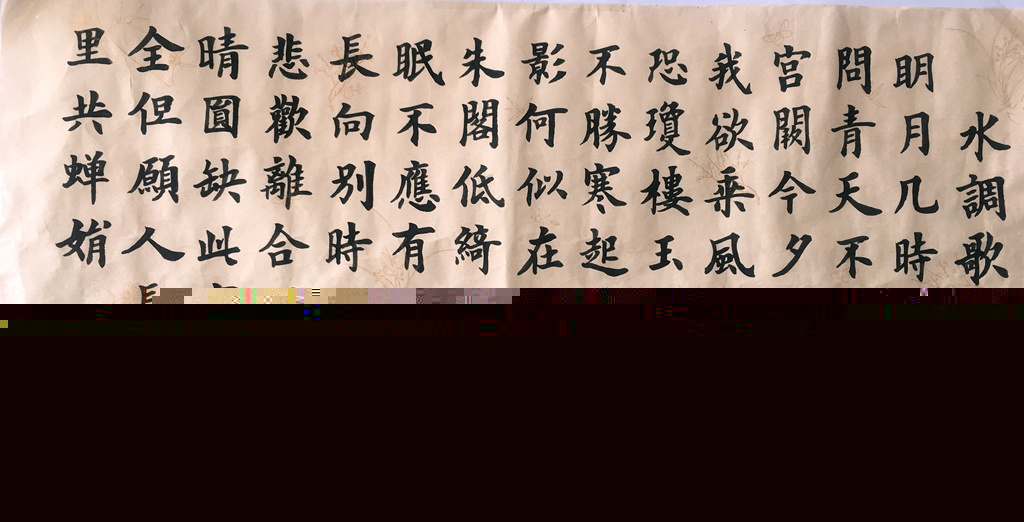 水調歌
明月几時
問青天不
宮闕今夕
我欲乗風
恐瓊樓玉
不勝寒起
影何似在
朱閣低綺
眠不應有
長向別時
悲歡離合
晴圓缺此
全但願人長
里共蝉娟